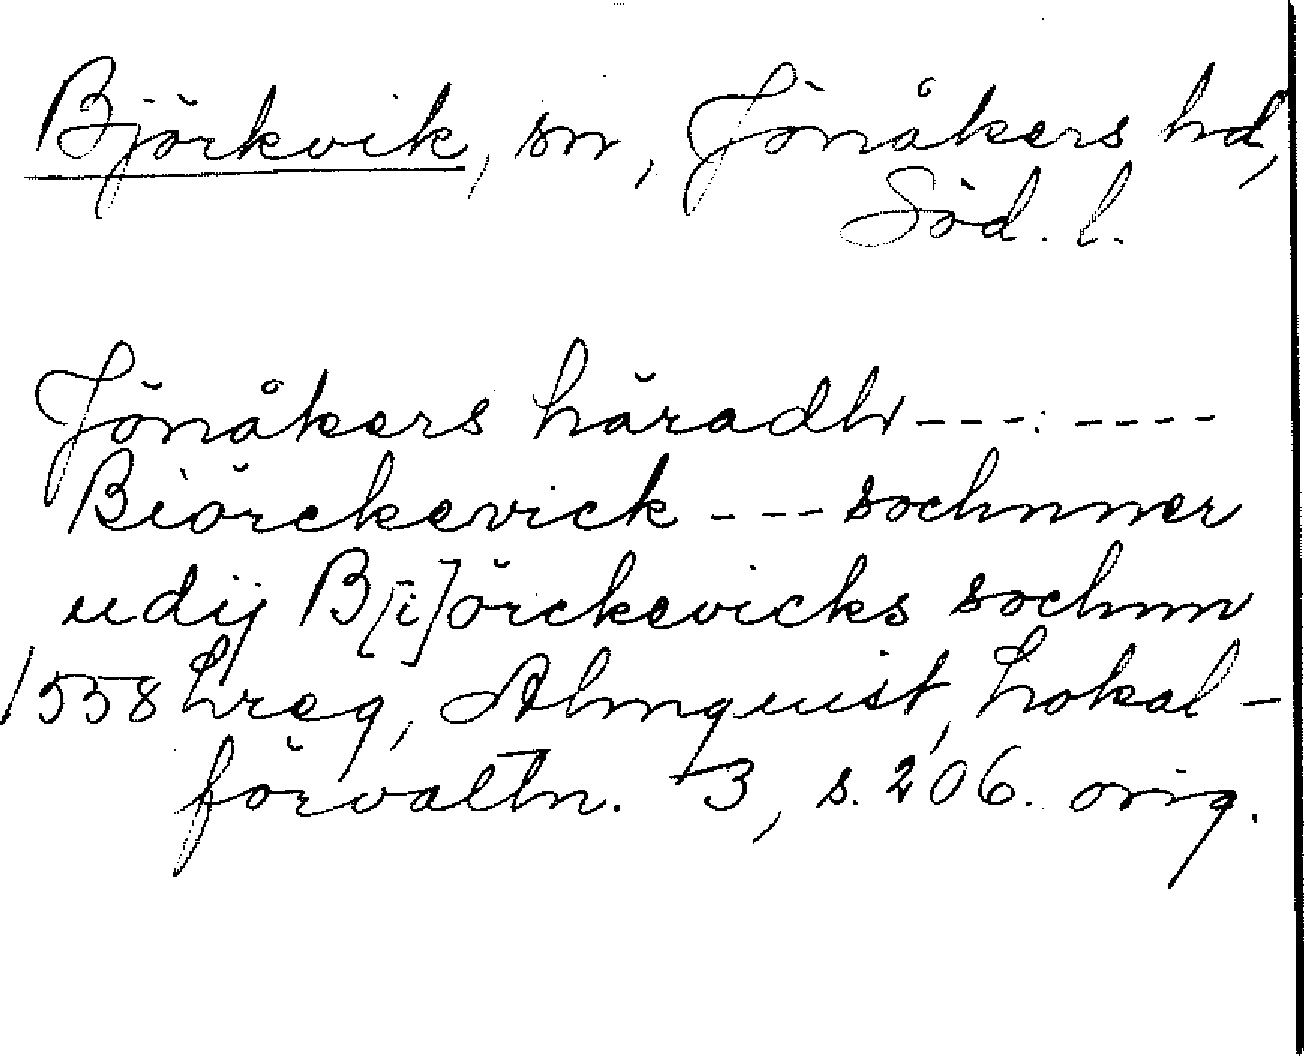 Björkvik, sn, Jönåkers hd,
Söd. l.
Jönåkers häradh ---: ----
Biörckevick --- sochnner
udij B[i]örckevicks sochnn
1558 Lreg, Almquist, Lokal-
förvaltn. 3, s. 206. orig.